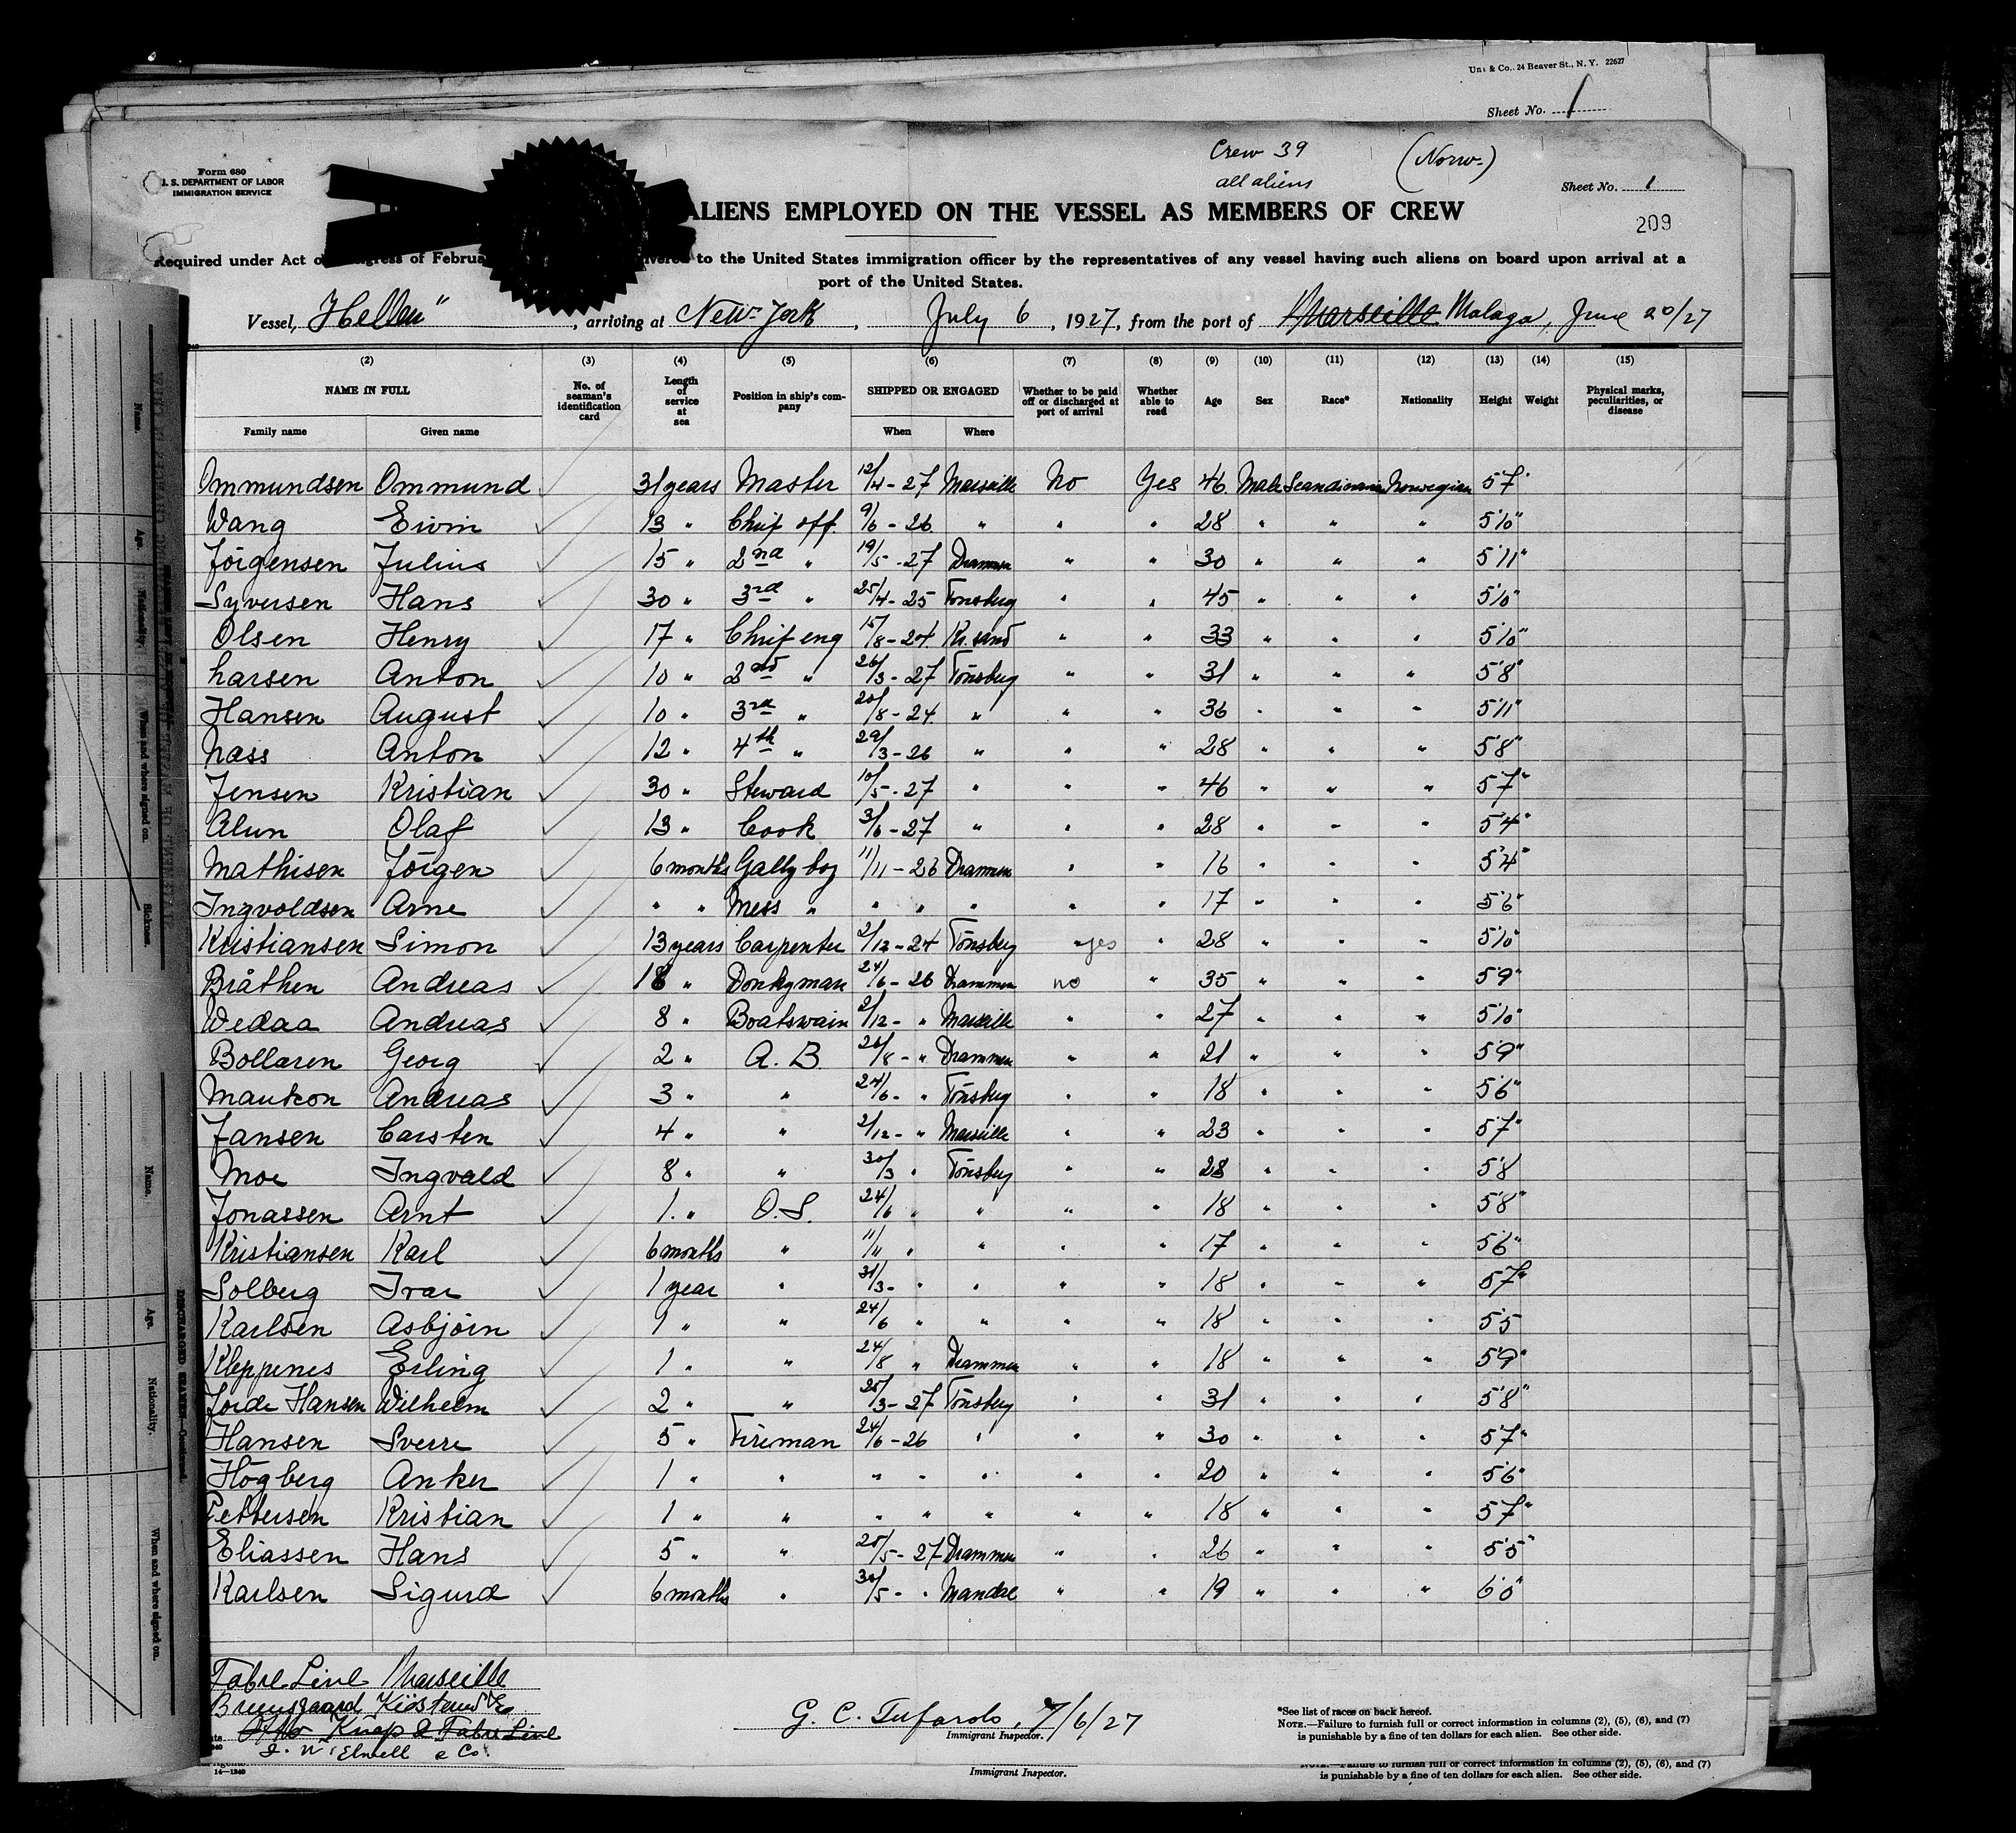 Uni & Co., 24 Beaver St., N. Y. 22627
Sheet No. 1
Crew 39 (Norw.)
all aliens
Form 680
U. S. DEPARTMENT OF LABOR
IMMIGRATION SERVICE
Sheet No. 1
ALIENS EMPLOYED ON THE VESSEL AS MEMBERS OF CREW
209
Required under Act of Congress of February to the United States immigration officer by the representatives of any vessel having such aliens on board upon arrival at a
port of the United States.
Vessel, Hellen", arriving at New-York, July 6, 1927, from the port of Marseille Malaga, June 20/27
(2) (3) (4) (5) (6) (7) (8) (9) (10) (11) (12) (13) (14) (15)
NAME IN FULL No. of seaman's identification card Length of service at sea Position in ship's company SHIPPED OR ENGAGED Whether to be paid off or discharged at port of arrival Whether able to read Age Sex Race* Nationality Height Weight Physical marks, peculiarities, or disease
Family name Given name When Where
Ommundsen Ommund 31 years Master 12/4-27 Marseille No Yes 46 Male Scandinavian Norwegian 5'7"
Wang Eivin 13 " Chief off. 9/6-26 " " " 28 " " " 5'10"
Jörgensen Julius 15 " 2nd " 19/5-27 Drammen " " 30 " " " 5'11"
Syversen Hans 30 " 3rd " 25/4-25 Tönsberg " " 45 " " " 5'10"
Olsen Henry 17 " Chief eng 15/8-24 Kr.sand " " 33 " " " 5'10"
Larsen Anton 10 " 2nd " 26/3-27 Tönsberg " " 31 " " " 5'8"
Hansen August 10 " 3rd " 20/8-24 " " " 36 " " " 5'11"
Nass Anton 12 " 4th " 29/3-26 " " " 28 " " " 5'8"
Jensen Kristian 30 " Steward 10/5-27 " " " 46 " " " 5'7"
Alun Olaf 13 " Cook 3/6-27 " " " 28 " " " 5'4"
Mathisen Jörgen 6 months Gally boy 11/11-26 Drammen " " 16 " " " 5'4"
Ingvoldsen Arne " " Mess " " " " " " 17 " " " 5'6"
Kristiansen Simon 13 years Carpenter 2/12-24 Tönsberg " yes " 28 " " " 5'10"
Bråthen Andreas 18 " Donkyman 24/6-26 Drammen no " 35 " " " 5'9"
Wedaa Andreas 8 " Boatswain 2/12- " Marseille " " 27 " " " 5'10"
Bollaren Georg 2 " A. B. 26/8- " Drammen " " 21 " " " 5'9"
Andreas 3 " " 24/6- " Tönsberg " " 18 " " " 5'6"
Jansen Carsten 4 " " 2/12- " Marseille " " 23 " " " 5'7"
Moe Ingvald 8 " " 30/3 " Tönsberg " " 28 " " " 5'8
Jonassen Arnt 1 " O.S. 24/6 " " " " 18 " " " 5'8"
Kristiansen Karl 6 months " 11/11 " " " " 17 " " " 5'6"
Solberg Ivar 1 year " 31/3- " " " " 18 " " " 5'7"
Karlsen Asbjörn 1 " " 24/6 " " " " 18 " " " 5'5
Kleppenes Erling 1 " " 24/8 " Drammen " " 18 " " " 5'9"
Hansen Wilhelm 2 " " 25/3-27 Tönsberg " " 31 " " " 5'8"
Hansen Sverre 5 " Fireman 24/6-26 " " " 30 " " " 5'7"
Högberg Anker 1 " " " " " " " 20 " " " 5'6"
Pettersen Kristian 1 " " " " " " " 18 " " " 5'7"
Eliassen Hans 5 " " 25/5-27 Drammen " " 26 " " " 5'5"
Karlsen Sigurd 6 months " 30/5- " Mandal " " 19 " " " 6'0"
Fabre Line Marseille
Bruusgaard Kiösterud
Fabre Line
& Co.
G. C. Tufarolo, 7/6/27
Immigrant Inspector.
*See list of races on back hereof.
NOTE.—Failure to furnish full or correct information in columns (2), (5), (6), and (7)
is punishable by a fine of ten dollars for each alien. See other side.
14—1240
Immigrant Inspector.
NOTE.—Failure to furnish full or correct information in columns (2), (5), (6), and (7)
is punishable by a fine of ten dollars for each alien. See other side.
Name.
Age.
Nationality.
When and where signed on.
Sickness.
Name.
Age.
Nationality.
When and where signed on.
DISCHARGED SEAMEN—Continued.